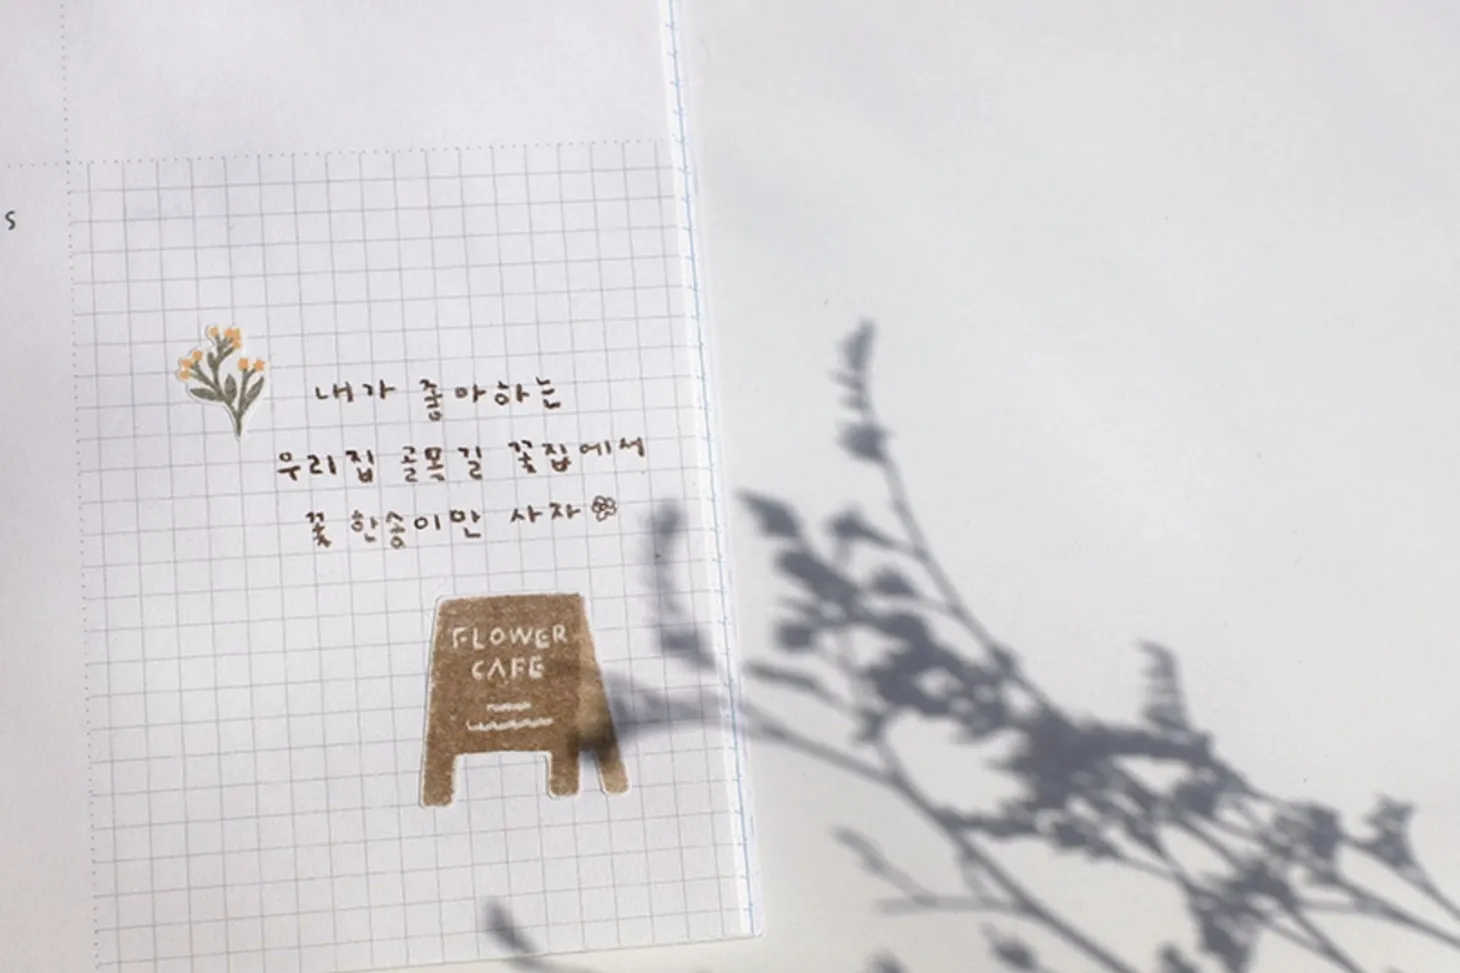 s
내가 좋아하는
우리집 골목길 꽃집에서
꽃 한송이만 사자
FLOWER
CAFE